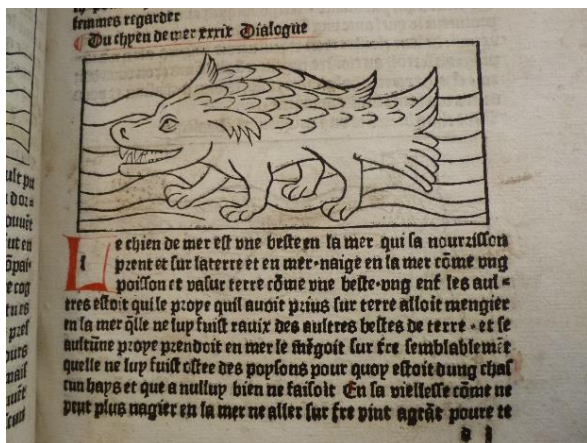 femmes regarder
Du chyen de mer xxxix Dialogue
Le chien de mer est vne beste en la mer qui sa nourrisson
prent et sur laterre et en mer·naige en la mer cõme vng
poisson et va sur terre cõme vne beste·vng ent̃ les aul=
tres estoit qui le proye quil auoit prins sur terre alloit mengier
en la mer q̃lle ne luy fuist rauix des aultres bestes de terre·et se
aultũne proye prendoit en mer le mẽgoit sur t̃re semblablemẽt
quelle ne luy fuist ostee des poysons pour quoy estoit dung chas
cun hays et que a nulluy bien ne faisoit En sa viellesse cõme ne
peut plus nagier en la mer ne aller sur t̃re vint a grãt poure te